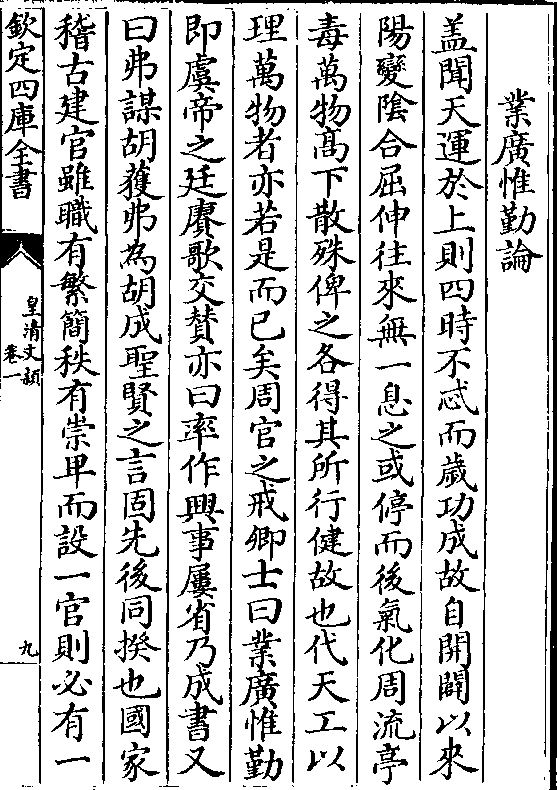 業廣惟勤論
盖聞天運於上則四時不忒而歲功成故自開闢以來
陽變陰合屈伸往來無一息之或停而後氣化周流亭
毒萬物髙下散殊俾之各得其所行健故也代天工以
理萬物者亦若是而已矣周官之戒卿士曰業廣惟勤
即虞帝之廷賡歌交賛亦曰率作興事屢省乃成書又
曰弗謀胡獲弗為胡成聖賢之言固先後同揆也國家
稽古建官雖職有繁簡秩有崇卑而設一官則必有一
欽定四庫全書
皇清文穎
卷一
九